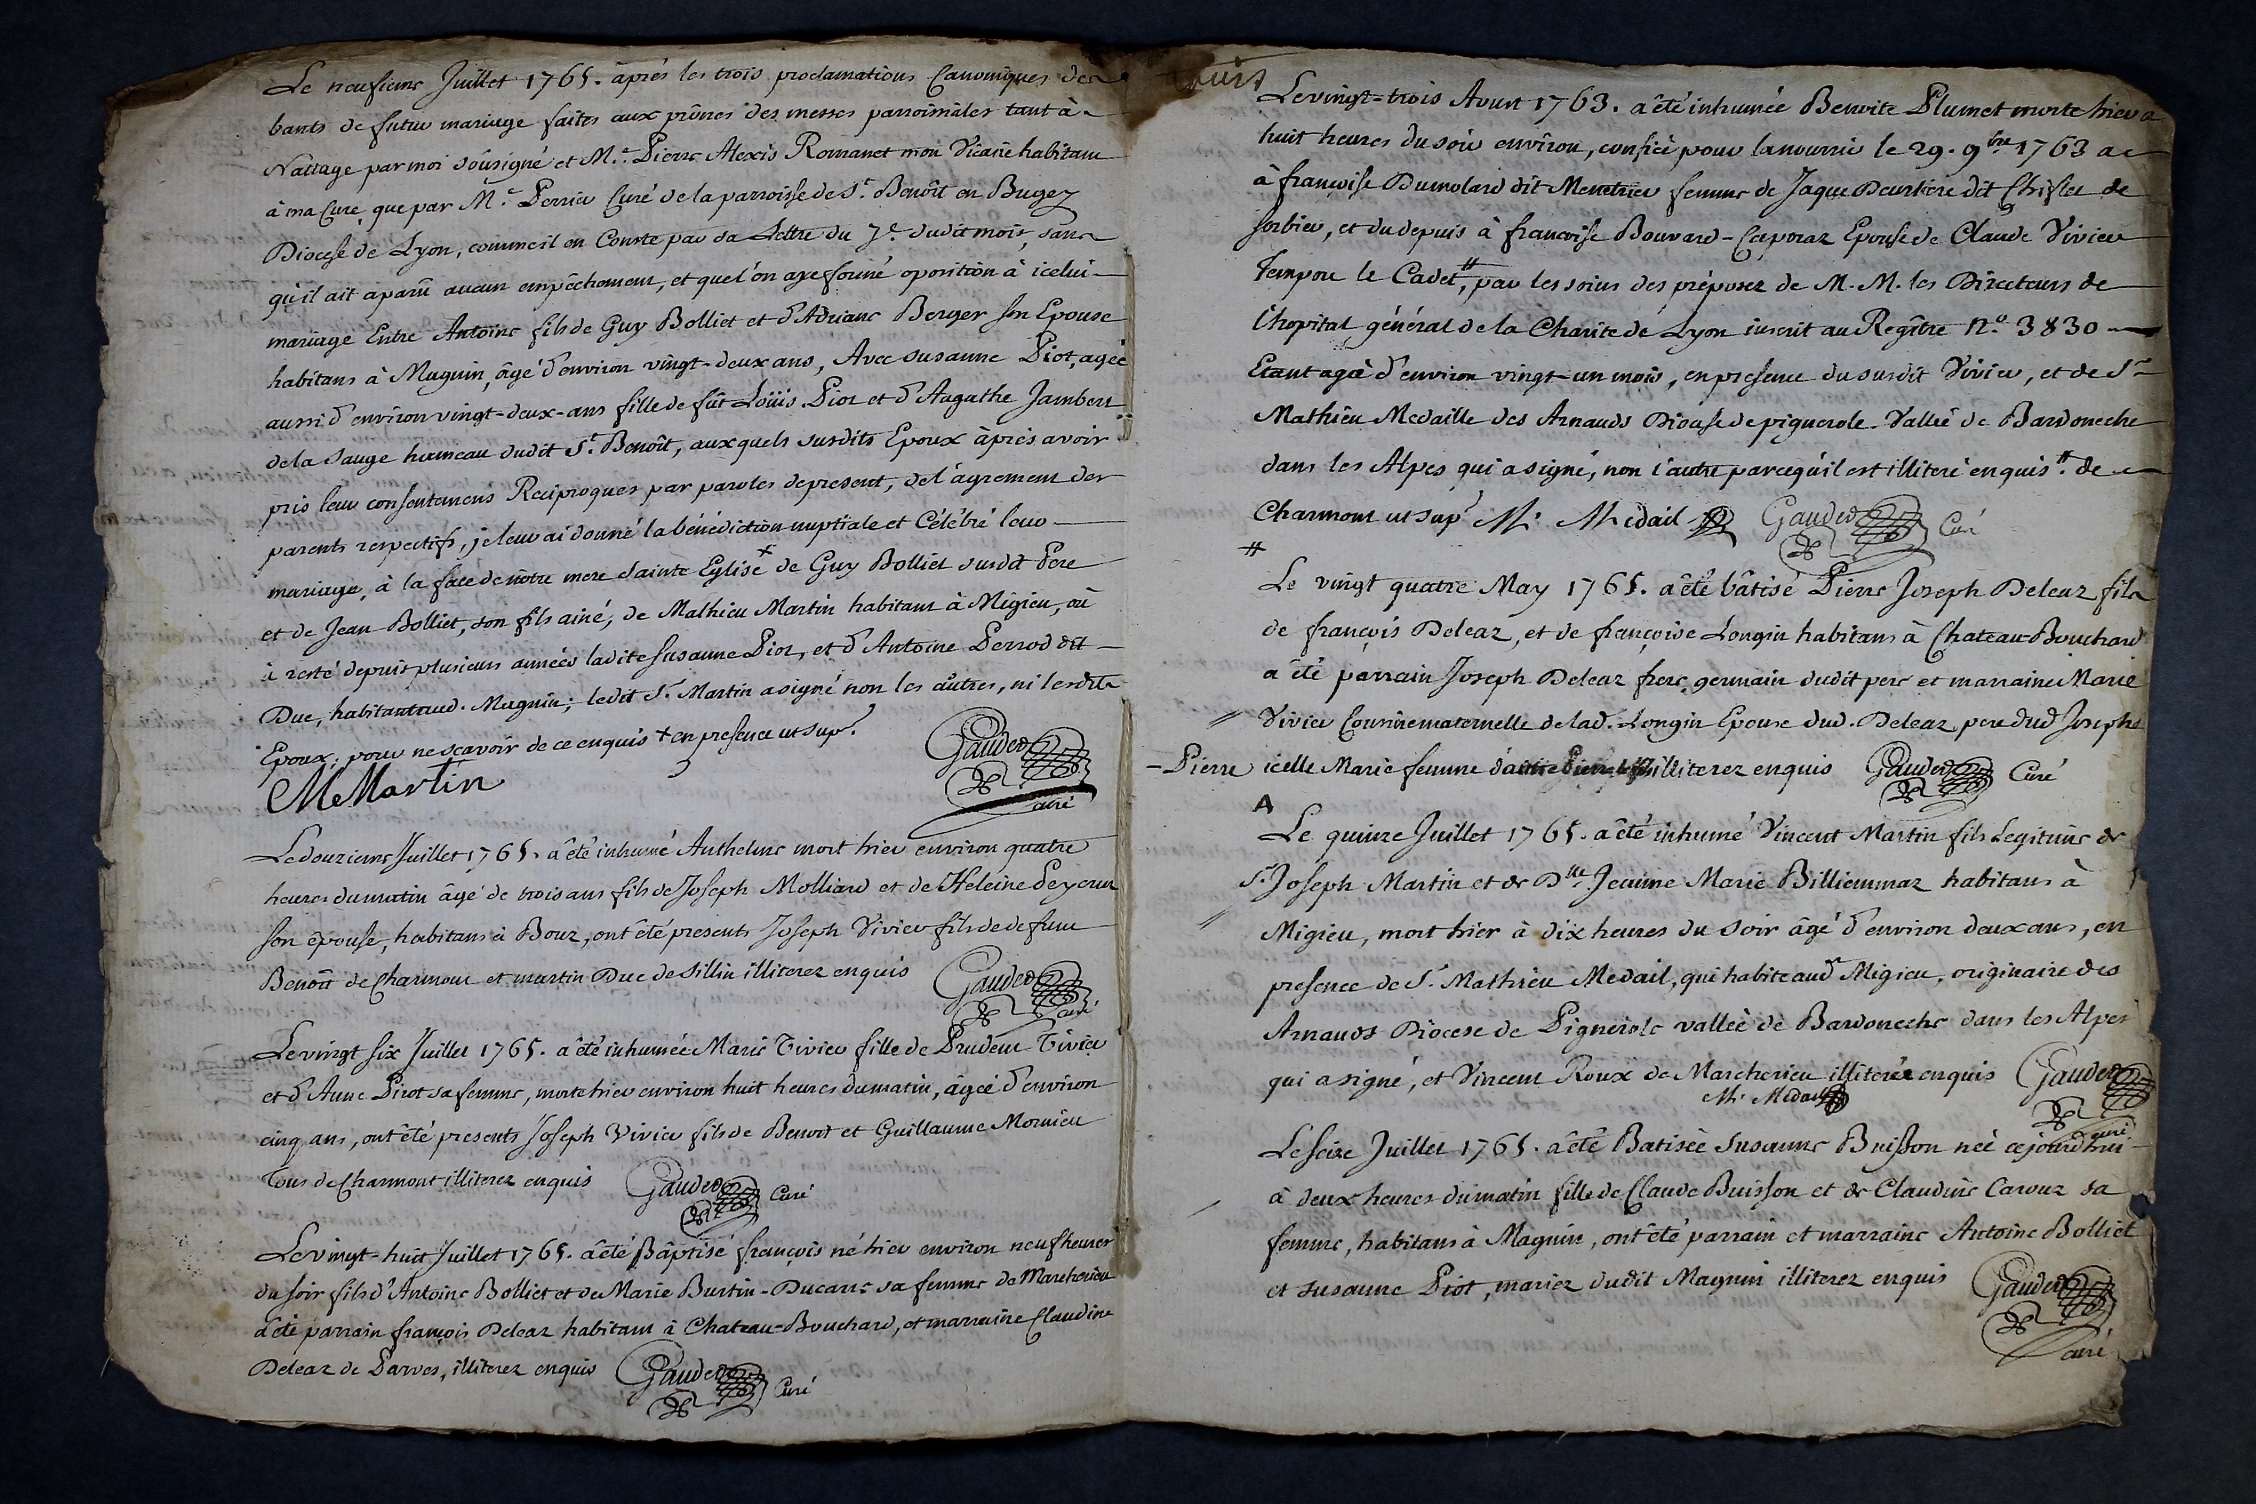 Le neufieme Juillet 1765. après les trois proclamations Canoniques des
bants de futur mariage faites aux prônes des messes parroissiales tant à
Nattage par moi soûsigné et M.e Pierre Alexis Romanet mon Vicaire habitant
à ma Cure que par M.e Perrier Curé de la parroisse de St. Benoît en Bugey
Diocese de Lyon, comme il en Conste par sa Lettre du 7e. dudit mois, sans
qu'il ait aparû aucun empêchement, et que l'on aye formé oposition à icelui
mariage Entre Antoine fils de Guy Bolliet et d'Adriane Berger son Epouse
habitans à Magnin, âgé d'environ vingt-deux ans, Avec Susanne Piot, agée
aussi d'environ vingt-deux-ans fille de fût Loüis Piot et d'Aagathe Jambert
de la Sauge hameau dudit St. Benoît, auxquels susdits Epoux àprès avoir
pris leur consentemens Reciproques par paroles de present, de l'âgrement des
parents respectifs, je leur ai donné la bénédiction nuptiale et Célébré leur
mariage, à la face de nôtre mere Sainte Eglise + de Guy Bolliet susdit Pere
et de Jean Bolliet, son fils ainé, de Mathieu Martin habitant à Migieu, où
à resté depuis plusieurs années ladite Susanne Piot, et d'Antoine Perrod dit
Duc, habitant aud. Magnin; ledit Sr. Martin a signé non les autres, ni lesdits
Epoux, pour ne scavoir de ce enquis + en presence ut supr.
M Martin Gauder Curé
Le douzieme Juillet 1765. a été inhumé Anthelme mort hier environ quatre
heures du matin âgé de trois ans fils de Joseph Molliard et de Heleine Peyeron
son êpouse, habitans à Bouz, ont été presents Joseph Vivier fils de defunt
Benoît de Charmont et martin Duc de Sillin illiterez enquis Gauder Curé
Le vingt six Juillet 1765. a été inhumée Marie Tivier fille de Prudent Tivier
et d'Anne Pirot sa femme, morte hier environ huit heures du matin, âgée d'environ
cinq ans, ont été presents Joseph Vivier fils de Benoit et Guillaume Mornieu
Tous de Charmont illiterez enquis Gauder Curé
Le vingt-huit Juillet 1765. a été Bâptisé françois né hier environ neuf heures
du soir fils d'Antoine Bolliet et de Marie Burtin-Ducarre sa femme de Marcherieu
a été parrain françois Deleaz habitant à Chateau-Bouchard, et marraine Claudine
Deleaz de Parves, illiterez enquis Gauder Curé
Le vingt-trois Avust 1763. a été inhumée Benoite Plumet morte hier a
huit heures du soir environ, confiée pour la nourrir le 29. 9bre 1763
à françoise Dumolard dit Menetrier femme de Jaque Deurliere dit Chiflet de
Sorbier, et du depuis à francoise Bouvard-Caporaz Epouse de Claude Vivier
Tempore le Cadet, #, par les soins des préposez de M. M. les Directeurs de
l'hopital général de la Charite de Lyon inscrit au Regître N.o 3830
Etant agée d'environ vingt-un mois, en presence du susdit Vivier, et de Sr.
Mathieu Medaille des Arnauds Diocese de pignerole Vallée de Bardoneche
dans les Alpes qui a signé, non l'autre parcequ'il est illiteré enquis. # de
Charmont ut supr. M. Medail Gauder Curé
#
Le vingt quatre May 1765. a été bâtisé Pierre Joseph Deleaz fils
de françois Deleaz, et de françoise Longin habitans à Chateau-Bouchard
a été parrain Joseph Deleaz frere germain dudit pere et marraine Marie
Vivier Cousine maternelle de lad. Longin Epouse dud. Deleaz pere dud Joseph
-Pierre icelle Marie femme illiterez enquis Gauder Curé
A
Le quinze Juillet 1765. a été inhumé Vincent Martin fils Legitime de
Sr. Joseph Martin et de Dlle. Jeanne Marie Billiemmaz habitans à
Migieu, mort hier à dix heures du soir âgé d'environ deux ans, en
presence de Sr. Mathieu Medail, qui habite aud. Migieu, originaire des
Arnauds Diocese de Pignerole vallée de Bardoneche dans les Alpes
qui a signé, et Vincent Roux de Marcherieu illiteréz enquis Gauder
M. Medail Curé
Le Seize Juillet 1765. a été Batisée Susanne Buisson née cejourd'hui
à deux heures du matin fille de Claude Buisson et de Claudine Carouz sa
femme, habitans à Magnin, ont été parrain et marraine Antoine Bolliet
et Susanne Piot, mariez dudit Magnin illiterez enquis Gauder
Curé